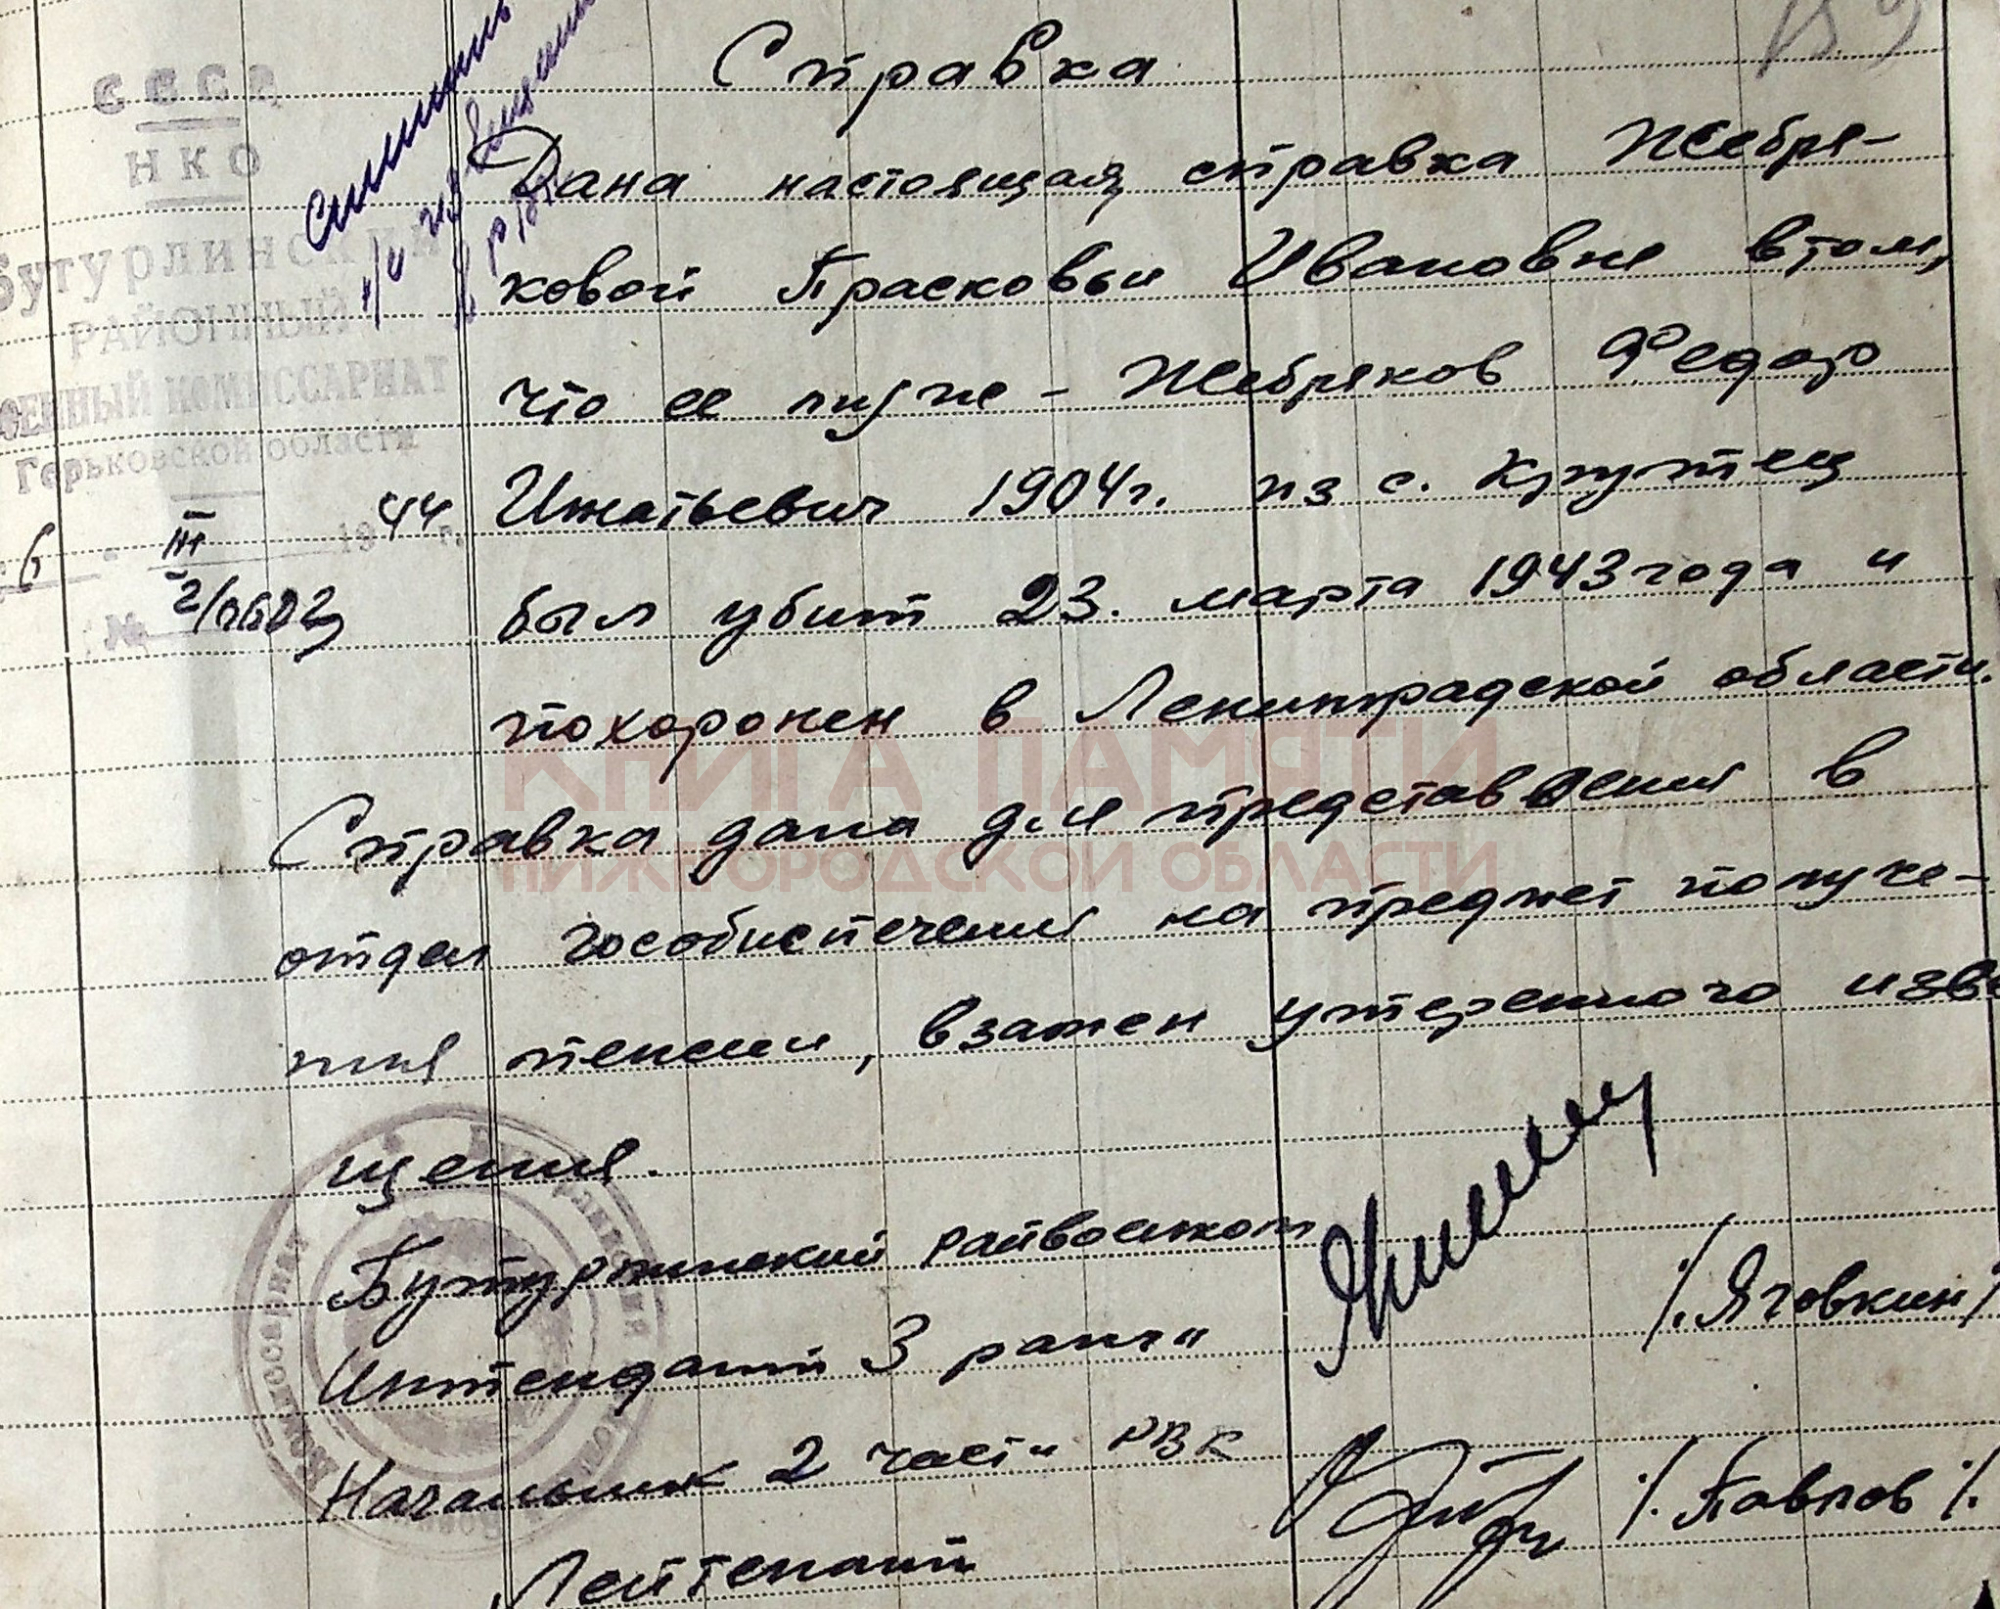 Справка
СССР
НКО
Бутурлинский
РАЙОННЫЙ
ВОЕННЫЙ КОМИССАРИАТ
Горьковской области
6 III 1944 г.
№ 2/
Дана настоящая справка Жебря-
ковой Прасковьи Ивановне в том,
что ее муж - Жебряков Федор
Игнатьевич 1904г. из с. Крутец
был убит 23. марта 1943 года и
похоронен в Ленинградской области.
Справка дана для представления в
отдел гособиспечения на предмет получе-
ния пенсии, взамен утерянного изве
щения.
Бутурлинский райвоенком
Интендант 3 ранга /.Яговкин/
Начальник 2 части РВК
Лейтенант /.Павлов/.
КНИГА ПАМЯТИ
НИЖЕГОРОДСКОЙ ОБЛАСТИ